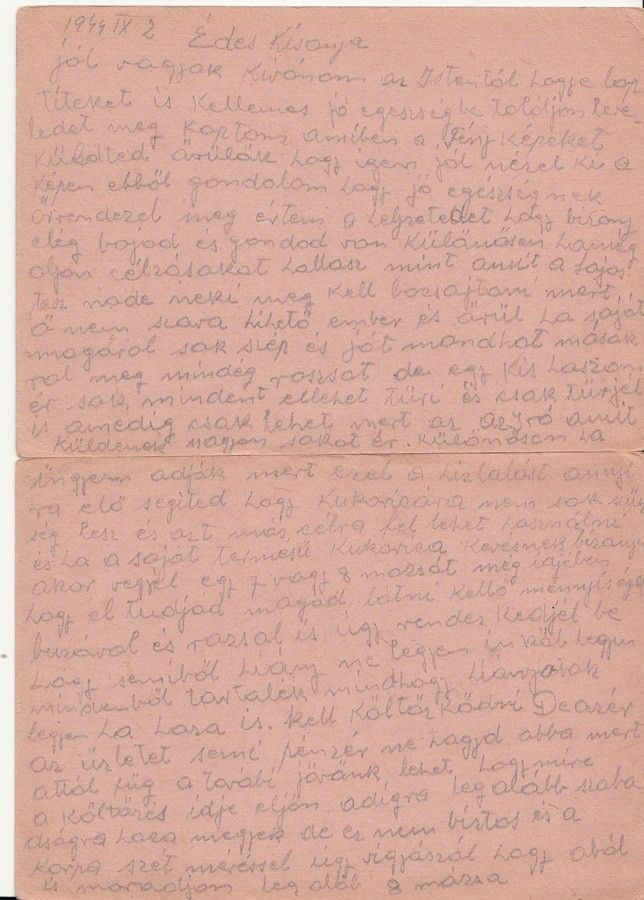 1944 IX 2
Édes Kisanya
jól vagyok Kivánom az Istentől hogy lap
Titeket is Kellemes jó egeszségbe találjon leve
ledet meg Kaptam amiben a Fényképeket
Küldted örülök hogy igen jol nézel Ki a
Képen ebből gondolom hogy jó egeszségnek
örvendezel meg értem a helyzetedet hogy bizony
elég bajod és gondod van Külänösen ha még
oljan célzásokat hallasz mint amit a Lajos
tesz nade neki meg Kell bocsajtani mert
Ő nem szava hihető ember és örül ha saját
magárol sok szép és jót mondhat mások
rol meg mindég rosszat de egy Kis haszon
ér sok mindent ellehet türi és csak türjel
is amedig csak lehet mert az apró amit
Küldenek nagyon sokat ér. Külänösen ha
ingyen adják mert ezel a hizlalást annyi
ra elő segited hogy Kukoricára nem sok szük
ség lesz és azt más célra fel lehet használni
és ha a saját termesü Kukorica Kevésnek bizonyu
akor vegyél egy 7 vagy 8 mázsát még idejében
hogy el tudjad magad látni Kellő mennyiségü
buzával és rozsal is úgy rendez Kedjél be
hogy semiből hiány ne legyen inkáb legyen
mindenből tartalék mindhogy hiányozok
legyen ha haza is. Kell Költöz Ködni De azér
az üzletet semi pénzér ne hagyd abba mert
attól füg a tovabi jövőnk lehet, hogy mire
a Költözés idje eljön adigra leg alább szaba
dságra haza megyek de ez nem biztos és a
Korpa szet méréssel úgy vigyazál hogy aból
is maradjon leg aláb 8 mázsa